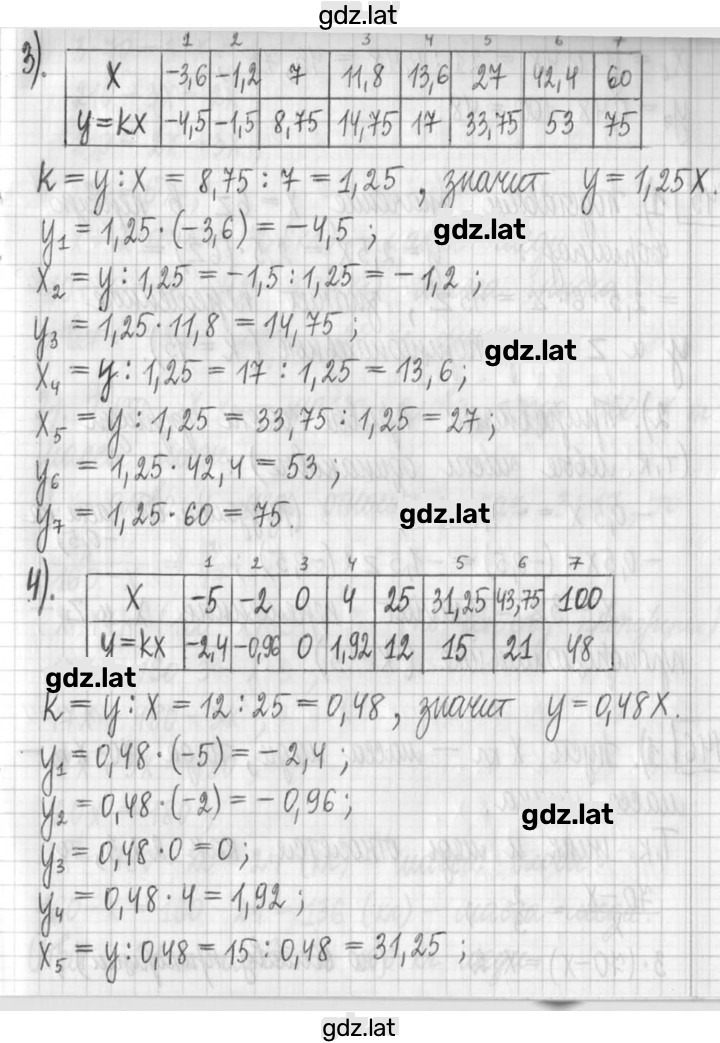 gdz.lat
3). 1 2 3 4 5 6 7
X -3,6 -1,2 7 11,8 13,6 27 42,4 60
y=kx -4,5 -1,5 8,75 14,75 17 33,75 53 75
k = y : x = 8,75 : 7 = 1,25 , значит y = 1,25x.
y₁ = 1,25·(-3,6) = -4,5 ; gdz.lat
x₂ = y : 1,25 = -1,5 : 1,25 = -1,2 ;
y₃ = 1,25·11,8 = 14,75 ;
gdz.lat
x₄ = y : 1,25 = 17 : 1,25 = 13,6 ;
x₅ = y : 1,25 = 33,75 : 1,25 = 27 ;
y₆ = 1,25·42,4 = 53 ;
y₇ = 1,25·60 = 75. gdz.lat
4). 1 2 3 4 5 6 7
X -5 -2 0 4 25 31,25 43,75 100
y=kx -2,4 -0,96 0 1,92 12 15 21 48
gdz.lat
k = y : x = 12 : 25 = 0,48 , значит y = 0,48x.
y₁ = 0,48·(-5) = -2,4 ;
y₂ = 0,48·(-2) = -0,96 ;
gdz.lat
y₃ = 0,48·0 = 0 ;
y₄ = 0,48·4 = 1,92 ;
x₅ = y : 0,48 = 15 : 0,48 = 31,25 ;
gdz.lat